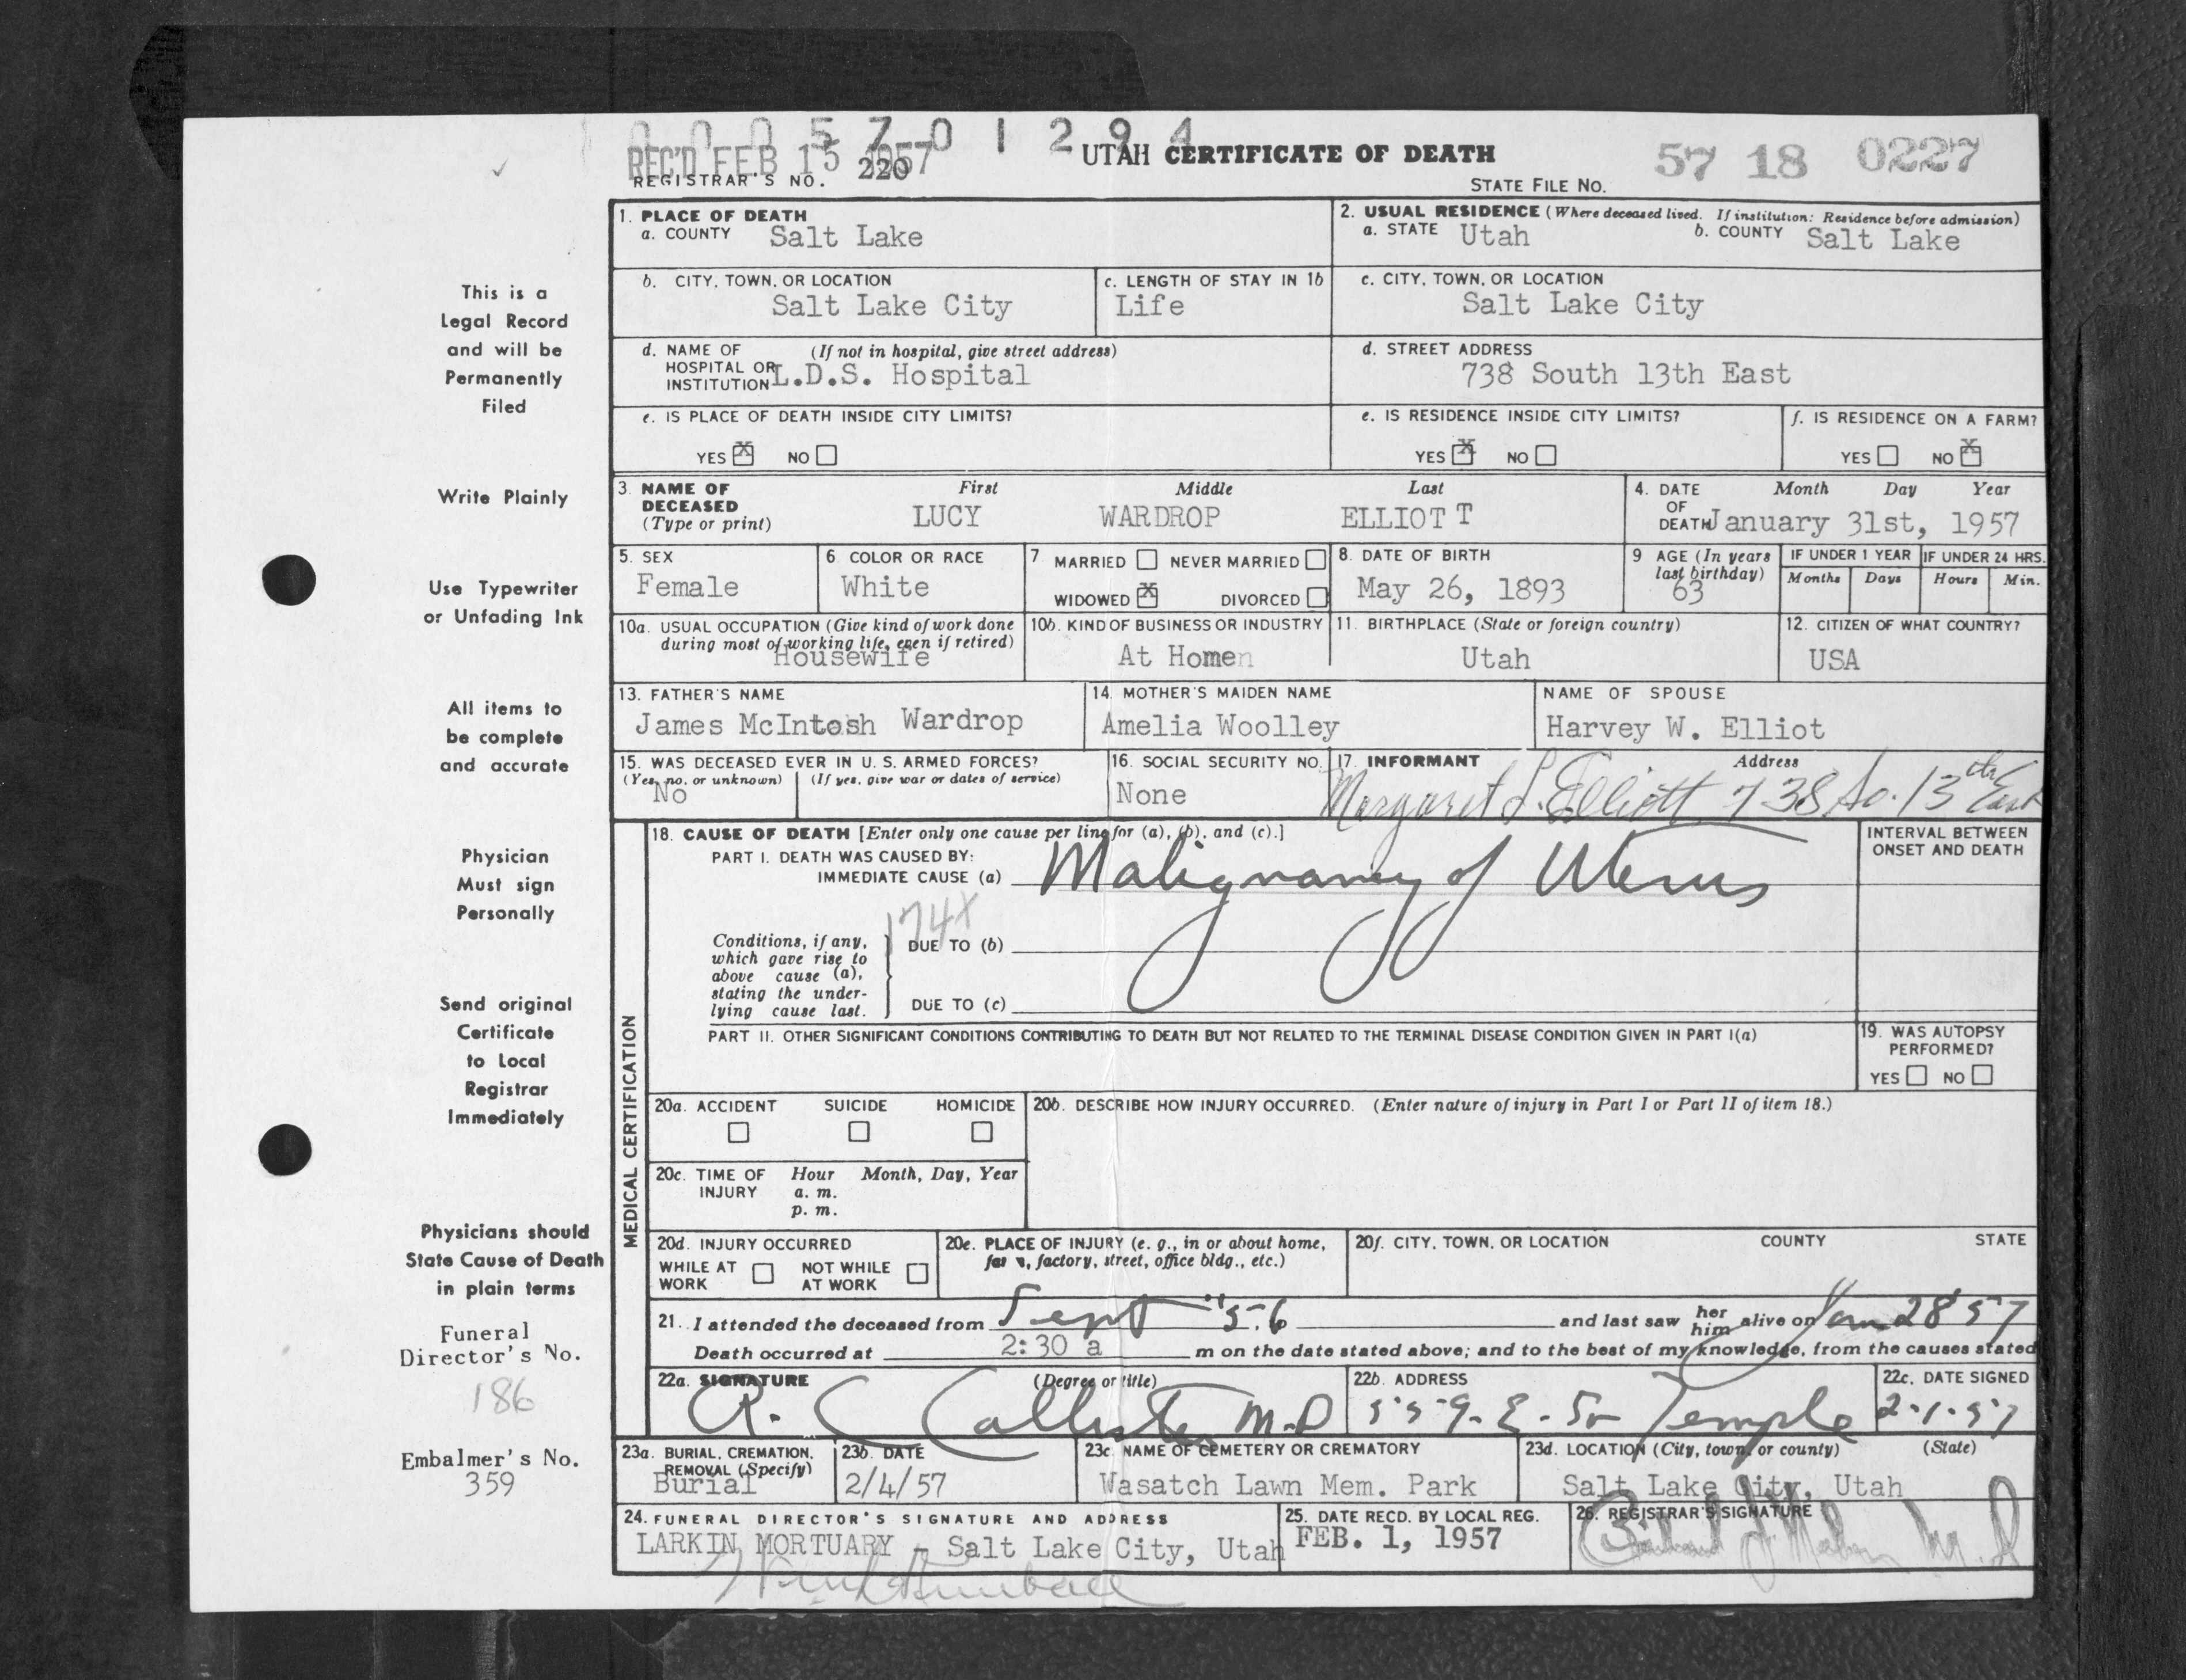 0 0 0 5 7 0 1 2 9 4
REC'D FEB 15 1957
UTAH CERTIFICATE OF DEATH
57 18 0227
REGISTRAR'S NO. 220
STATE FILE NO.
1. PLACE OF DEATH
a. COUNTY Salt Lake
2. USUAL RESIDENCE (Where deceased lived. If institution: Residence before admission)
a. STATE Utah b. COUNTY Salt Lake
b. CITY, TOWN, OR LOCATION
Salt Lake City
c. LENGTH OF STAY IN 1b
Life
c. CITY, TOWN, OR LOCATION
Salt Lake City
d. NAME OF HOSPITAL OR INSTITUTION (If not in hospital, give street address)
L.D.S. Hospital
d. STREET ADDRESS
738 South 13th East
e. IS PLACE OF DEATH INSIDE CITY LIMITS?
YES X NO
e. IS RESIDENCE INSIDE CITY LIMITS?
YES X NO
f. IS RESIDENCE ON A FARM?
YES NO X
3. NAME OF DECEASED (Type or print)
First Middle Last
LUCY WARDROP ELLIOTT
4. DATE OF DEATH Month Day Year
January 31st, 1957
5. SEX
Female
6. COLOR OR RACE
White
7 MARRIED NEVER MARRIED
WIDOWED X DIVORCED
8. DATE OF BIRTH
May 26, 1893
9 AGE (In years last birthday)
63
IF UNDER 1 YEAR
Months Days
IF UNDER 24 HRS.
Hours Min.
10a. USUAL OCCUPATION (Give kind of work done during most of working life, even if retired)
Housewife
10b. KIND OF BUSINESS OR INDUSTRY
At Homen
11. BIRTHPLACE (State or foreign country)
Utah
12. CITIZEN OF WHAT COUNTRY?
USA
13. FATHER'S NAME
James McIntosh Wardrop
14. MOTHER'S MAIDEN NAME
Amelia Woolley
NAME OF SPOUSE
Harvey W. Elliot
15. WAS DECEASED EVER IN U. S. ARMED FORCES?
(Yes, no, or unknown) (If yes, give war or dates of service)
No
16. SOCIAL SECURITY NO.
None
17. INFORMANT Address
Margaret L. Elliott 738 So. 13th East
MEDICAL CERTIFICATION
18. CAUSE OF DEATH [Enter only one cause per line for (a), (b), and (c).]
PART I. DEATH WAS CAUSED BY:
IMMEDIATE CAUSE (a) Malignancy of Uterus
INTERVAL BETWEEN ONSET AND DEATH
174X
Conditions, if any, which gave rise to above cause (a), stating the underlying cause last.
DUE TO (b)
DUE TO (c)
PART II. OTHER SIGNIFICANT CONDITIONS CONTRIBUTING TO DEATH BUT NOT RELATED TO THE TERMINAL DISEASE CONDITION GIVEN IN PART I(a)
19. WAS AUTOPSY PERFORMED?
YES NO
20a. ACCIDENT SUICIDE HOMICIDE
20b. DESCRIBE HOW INJURY OCCURRED. (Enter nature of injury in Part I or Part II of item 18.)
20c. TIME OF INJURY Hour Month, Day, Year
a. m.
p. m.
20d. INJURY OCCURRED
WHILE AT WORK NOT WHILE AT WORK
20e. PLACE OF INJURY (e. g., in or about home, farm, factory, street, office bldg., etc.)
20f. CITY, TOWN, OR LOCATION COUNTY STATE
21. I attended the deceased from Sept '56 and last saw her him alive on Jan 28 '57
Death occurred at 2:30 a m on the date stated above; and to the best of my knowledge, from the causes stated
22a. SIGNATURE (Degree or title)
R. C Callister M.D
22b. ADDRESS
559. E. So Temple
22c. DATE SIGNED
2-1-57
23a. BURIAL, CREMATION, REMOVAL (Specify)
Burial
23b. DATE
2/4/57
23c. NAME OF CEMETERY OR CREMATORY
Wasatch Lawn Mem. Park
23d. LOCATION (City, town, or county) (State)
Salt Lake City, Utah
24. FUNERAL DIRECTOR'S SIGNATURE AND ADDRESS
LARKIN MORTUARY - Salt Lake City, Utah
25. DATE RECD. BY LOCAL REG.
FEB. 1, 1957
26. REGISTRAR'S SIGNATURE
This is a
Legal Record
and will be
Permanently
Filed
Write Plainly
Use Typewriter
or Unfading Ink
All items to
be complete
and accurate
Physician
Must sign
Personally
Send original
Certificate
to Local
Registrar
Immediately
Physicians should
State Cause of Death
in plain terms
Funeral
Director's No.
186
Embalmer's No.
359